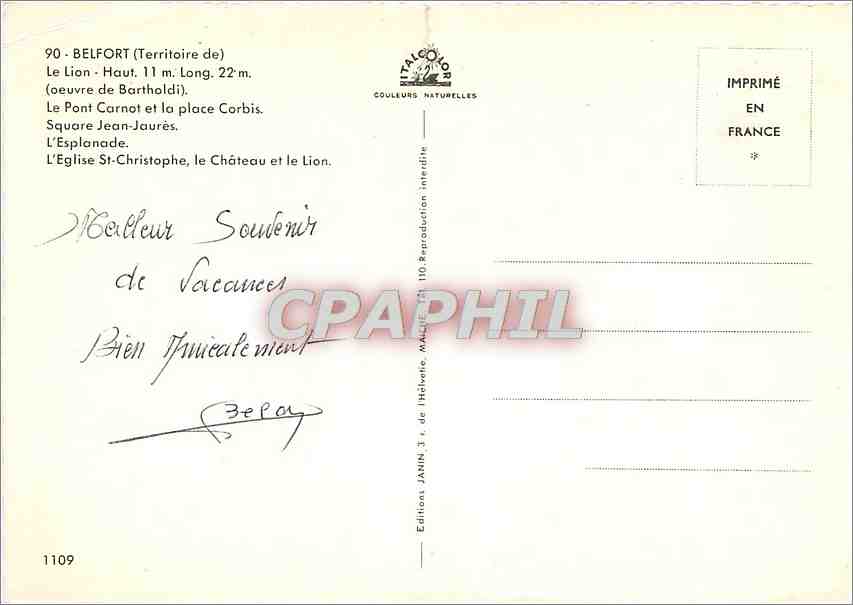 90 - BELFORT (Territoire de)
Le Lion - Haut. 11 m. Long. 22 m.
(oeuvre de Bartholdi).
Le Pont Carnot et la place Corbis.
Square Jean-Jaurès.
L'Esplanade.
L'Eglise St-Christophe, le Château et le Lion.
ITALCOLOR
COULEURS NATURELLES
IMPRIMÉ
EN
FRANCE
*
Meilleur Souvenir
de Vacances
Bien Amicalement
CPAPHIL
Editions JANIN, 3 r. de l'Helvétie, MAICHE. Tél. 110. Reproduction interdite
1109